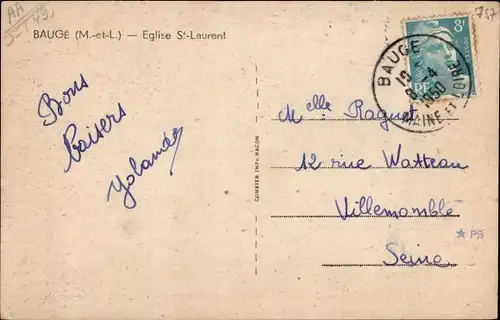 BAUGÉ (M.-et-L.) — Eglise St-Laurent
Bons
baisers
Yolande
COMBIER IMP. MACON
8F
RF
BAUGÉ
19
8-4
1950
MAINE ET LOIRE
Melle Raguet
12 rue Watteau
Villemomble
Seine
PB